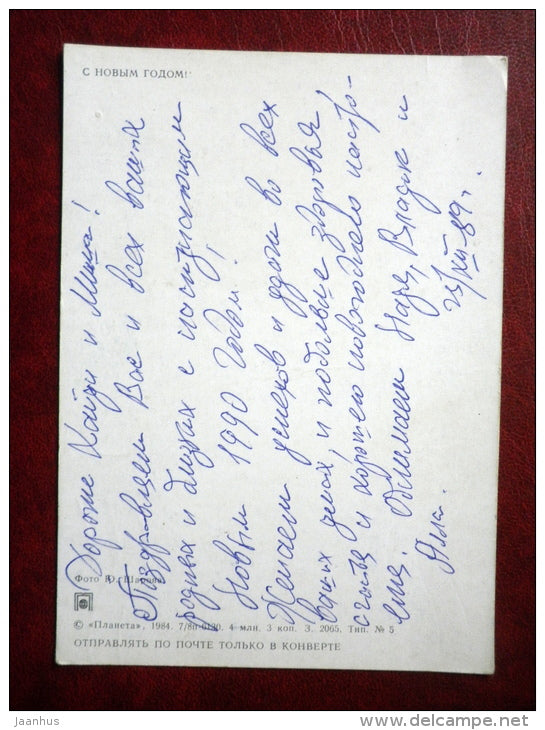 С НОВЫМ ГОДОМ!
Дорогие Хайди и Миша!
Поздравляем Вас и всех ваших
родных и близких с наступающим
Новым 1990 годом!
Желаем успехов и удачи во всех
ваших делах, и побольше здоровья,
счастья и хорошего новогоднего настро-
ения. Обнимаем Надя, Владик и
Алла.
/XII-89 г.
Фото Ю. Шарова
© «Планета», 1984. 7/8п-0130. 4 млн. 3 коп. З. 2065. Тип. № 5
ОТПРАВЛЯТЬ ПО ПОЧТЕ ТОЛЬКО В КОНВЕРТЕ
jaanhus
www.delcampe.net